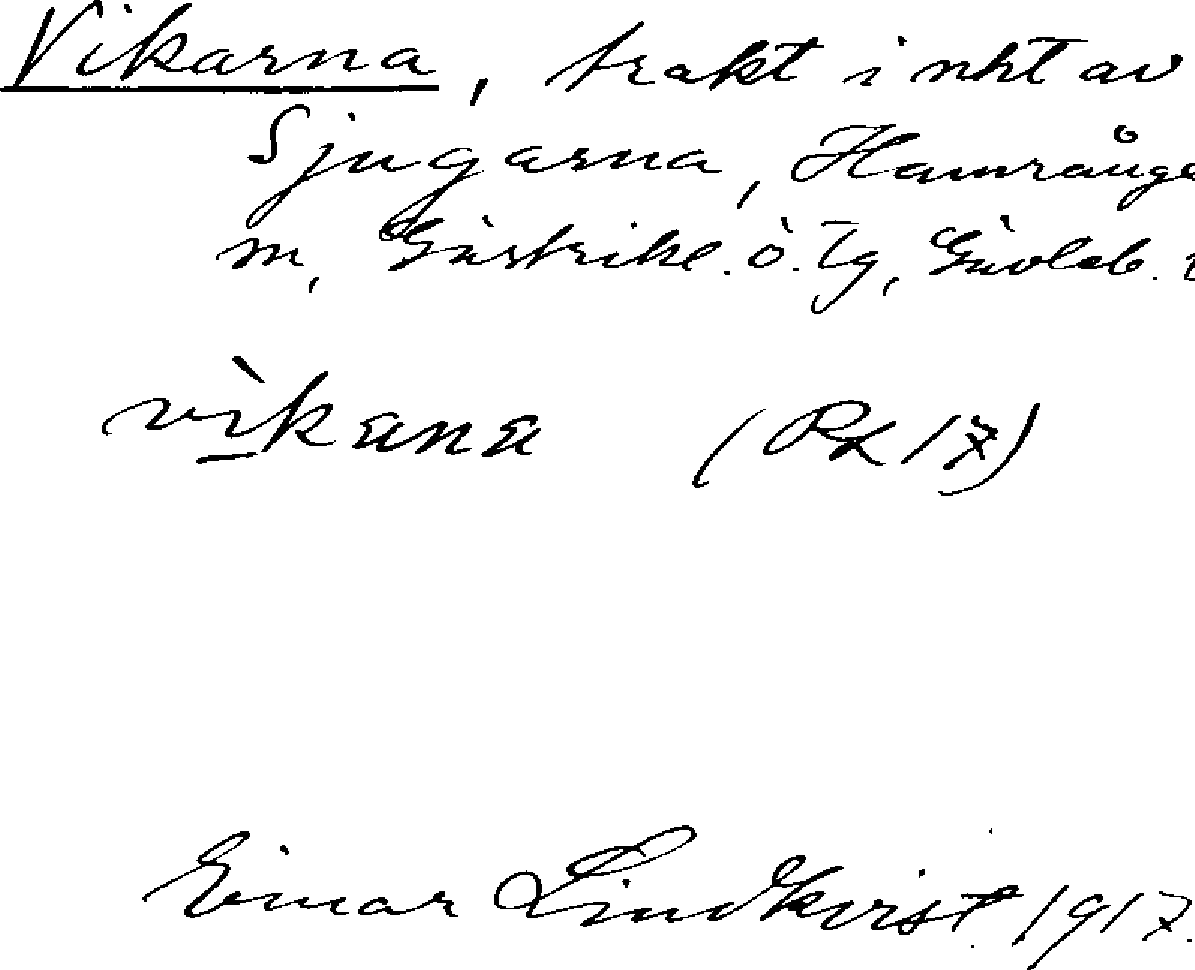 Vikarna, trakt i nht av
Sjugarna, Hamrånge
sn, Gästrikl. ö. tg, Gävleb.
vìkana (Rz 17)
Einar Lindkvist 1917.